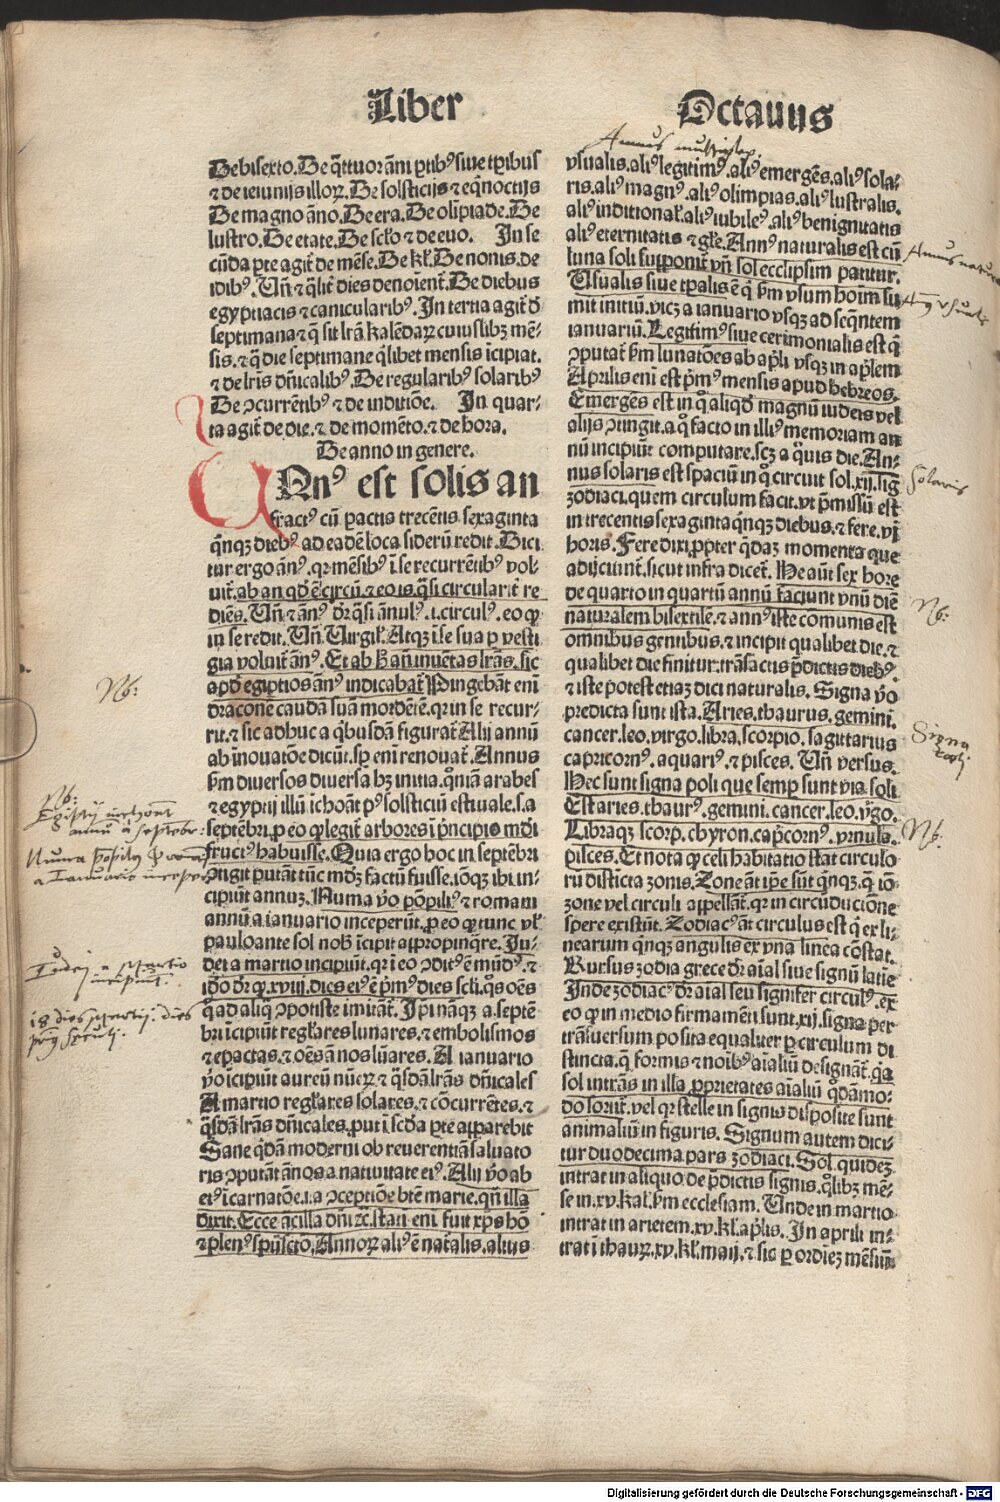 Liber Octauus
De bisexto. De q̄ttuor āni ꝑtibꝰ siue tꝑibus
⁊ de ieiunijs illoꝝ. De solsticijs ⁊ eq̄noctijs
De magno āno. De era. De olīpiade. De
lustro. De etate. De sclo ⁊ de euo. In se
cūda ꝑte agit̄ de mēse. De kl̄. De nonis. de
idibꝰ. Un̄ ⁊ q̄lit̄ dies denoīent̄. De diebus
egyptiacis ⁊ canicularibꝰ. In tertia agit̄ ď
septimana ⁊ q̄ sit lr̄a kalēdaꝝ cuiuslibꝫ mē-
sis. ⁊ q̄ die septimane q̄libet mensis īcipiat.
⁊ de lr̄is dn̄icalibꝰ. De regularibꝰ solaribꝰ
De ↄcurrētibꝰ ⁊ de inditiōe. In quar-
ta agit̄ de die. ⁊ de momēto. ⁊ de hora.
De anno in genere.
Anꝰ est solis an
fractꝰ cū pactis trecētis sexaginta
q̄nqꝫ diebꝰ ad eadē loca siderū redit. Dici
tur ergo ānꝰ. qꝛ mēsibꝰ ī se recurrētibꝰ vol-
uit̄. ab an qď ē circū. ⁊ eo is. q̄si circularit̄ re
diēs. Un̄ ⁊ ānꝰ dr̄ q̄si ānulꝰ. i. circulꝰ. eo ꝙ
in se redit. Un̄ Uirgil̄. Atqꝫ ī se sua ꝑ vesti
gia voluit̄ ānꝰ. Et ab h̄ an̄ inuētas lr̄as. sic
apď egiptios ānꝰ indicabat̄ Pingebāt eni
draconē caudā suā mordētē. qꝛ in se recur-
rit. ⁊ sic adhuc a q̄busdā figurat̄ Alij annū
ab īnouatōe dicūt. sꝑ eni renouat̄. Annus
ẜm diuersos diuersa hꝫ initia. q̄niā arabes
⁊ egyptij illū īchoāt pꝰ solsticiū estiuale. s. a
septēbri. ꝑ eo ꝙ legit̄ arbores ī prīcipio mdi
fructꝰ habuisse. Quia ergo hoc in septēbri
ↄtigit putāt tūc mdꝫ factū fuisse. iōqꝫ ibi in-
cipiūt annuꝫ. Numa v̄o pōpiliꝰ ⁊ romani
annū a ianuario inceperūt. ꝑ eo ꝙ tunc vl̄
paulo ante sol nobꝰ īcipit appropinq̄re. Ju-
dei a martio incipiūt. qꝛ ī eo ↄditꝰ ē mūdꝰ. ⁊
iđo dr̄ ꝙ. xviij. dies eiꝰ ē pͥmꝰ dies scli. qͦs oēs
q̄ ad aliq̄ ꝑpotiste imitāt̄. Ip̄i nāqꝫ a. septē
bri īcipiūt reglares lunares. ⁊ embolismos
⁊ epactas. ⁊ oēs ānos lūares. A ianuario
v̄o īcipiūt aureū nūeꝝ ⁊ q̄sdā lr̄as dn̄icales
A martio reglares solares. ⁊ cōcurrētes. ⁊
q̄sdā lr̄as dn̄icales. ꝓut ī scďa ꝑte apparebit
Sane q̄dā moderni ob reuerentiā saluato
ris ↄputāt ānos a natiuitate eiꝰ. Alij v̄o ab
eiꝰ īcarnatōe. i. a ↄceptiōe btē marie. qn̄ illa
dixit. Ecce ācilla dn̄i ⁊c. stati eni fuit xp̄s hō
⁊ plenꝰ spūsctō. Annoꝝ aliꝰ ē nat̄alis. alius
Annus multiplex.
vsualis. aliꝰ legitimꝰ. aliꝰ emergēs. aliꝰ sola-
ris. aliꝰ magnꝰ. aliꝰ olimpias. aliꝰ lustralis.
aliꝰ inditional̄. aliꝰ iubileꝰ. aliꝰ benignitatis
aliꝰ eternitatis ⁊ gl̄e. Annꝰ naturalis est cū
luna soli supponit̄ vn̄ sol ecclipsim patitur.
Usualis siue tꝑalis ē q̄ ẜm vsum hoīm su
mit initiū. vicꝫ a ianuario vsqꝫ ad seqn̄tem
ianuariū. Legitimꝰ siue cerimonialis est q̄
ↄputat̄ ẜm lunatōes ab apͥli vsqꝫ in apͥlem
Aprilis eni est pͥmꝰ mensis apud hebreos.
Emergēs est in q̄ aliqď magnū iudeis vel
alijs ↄtingit. a qͦ facto in illiꝰ memoriam an
nū incipiūt computare. scꝫ a qͦuis die. An-
nus solaris est spaciū in qͦ circuit sol. xij. sig
zodiaci. quem circulum facit. vt p̄missū est
in trecentis sexaginta q̄nqꝫ diebus. ⁊ fere. vj
horis. Fere dixi. ꝓpter q̄daꝫ momenta que
adijciunt̄. sicut infra dicet̄. He aūt sex hore
de quarto in quartū annū faciunt vnū diē
naturalem bisextilē. ⁊ annꝰ iste comunis est
omnibus gentibus. ⁊ incipit qualibet die. ⁊
qualibet die finitur. trāsactis p̄dictis diebꝰ.
⁊ iste potest etiaꝫ dici naturalis. Signa v̄o
predicta sunt ista. Aries. thaurus. gemini.
cancer. leo. virgo. libra. scorpio. sagittarius
capricornꝰ. aquariꝰ. ⁊ pisces. Un̄ versus.
Hec sunt signa poli que semp sunt via soli
Est aries. thaurꝰ. gemini. cancer. leo. v̄go.
Libraqꝫ scorp. chyron. capͥcornꝰ. vrnula.
pisces. Et nota ꝙ celi habitatio stat circulo
rū distīcta zonis. Zone āt ip̄e sūt q̄nqꝫ. q̄ iō-
zone vel circuli appellāt̄. qꝛ in circūductōne
spere existūt. Zodiacꝰ āt circulus est q̄ ex li-
nearum q̄nqꝫ angulis ex vna linea cōstat.
Rursus zodia grece dr̄ aīal siue signū latie
Jnde zodiacꝰ dr̄ aīal seu signifer circulꝰ. ex
eo ꝙ in medio firmamēti sunt. xij. signa per
trāsuersum posita equaliter ꝑ circulum di
stincta. q̄ formis ⁊ noībꝰ aīaliū designāt̄. q̄a
sol intrās in illa ꝓprietates aīaliū q̄dāmo-
do sortit̄. vel qꝛ stelle in signis disposite sunt
animaliū in figuris. Signum autem dici-
tur duodecima pars zodiaci. Sol quideꝫ
intrat in aliquo de p̄dictis signis. q̄libꝫ mē-
se in. xv. kal̄. ẜm ecclesiam. Unde in martio
intrat in arietem. xv. kl̄. apͥlis. In aprili in-
trat ī thauꝝ. xv. kl̄. maij. ⁊ sic ꝑ ordineꝫ mēsiū
Solaris
Nb.
Signa
Nb.
Nb:
Nb: